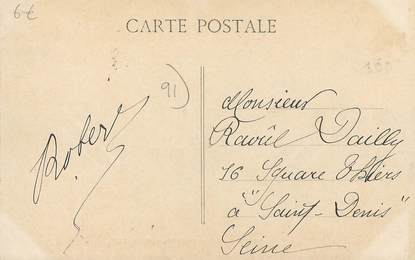 6€
CARTE POSTALE
91)
Robert
Monsieur
Raoûl Dailly
16 Square Thiers
à "Saint-Denis"
Seine